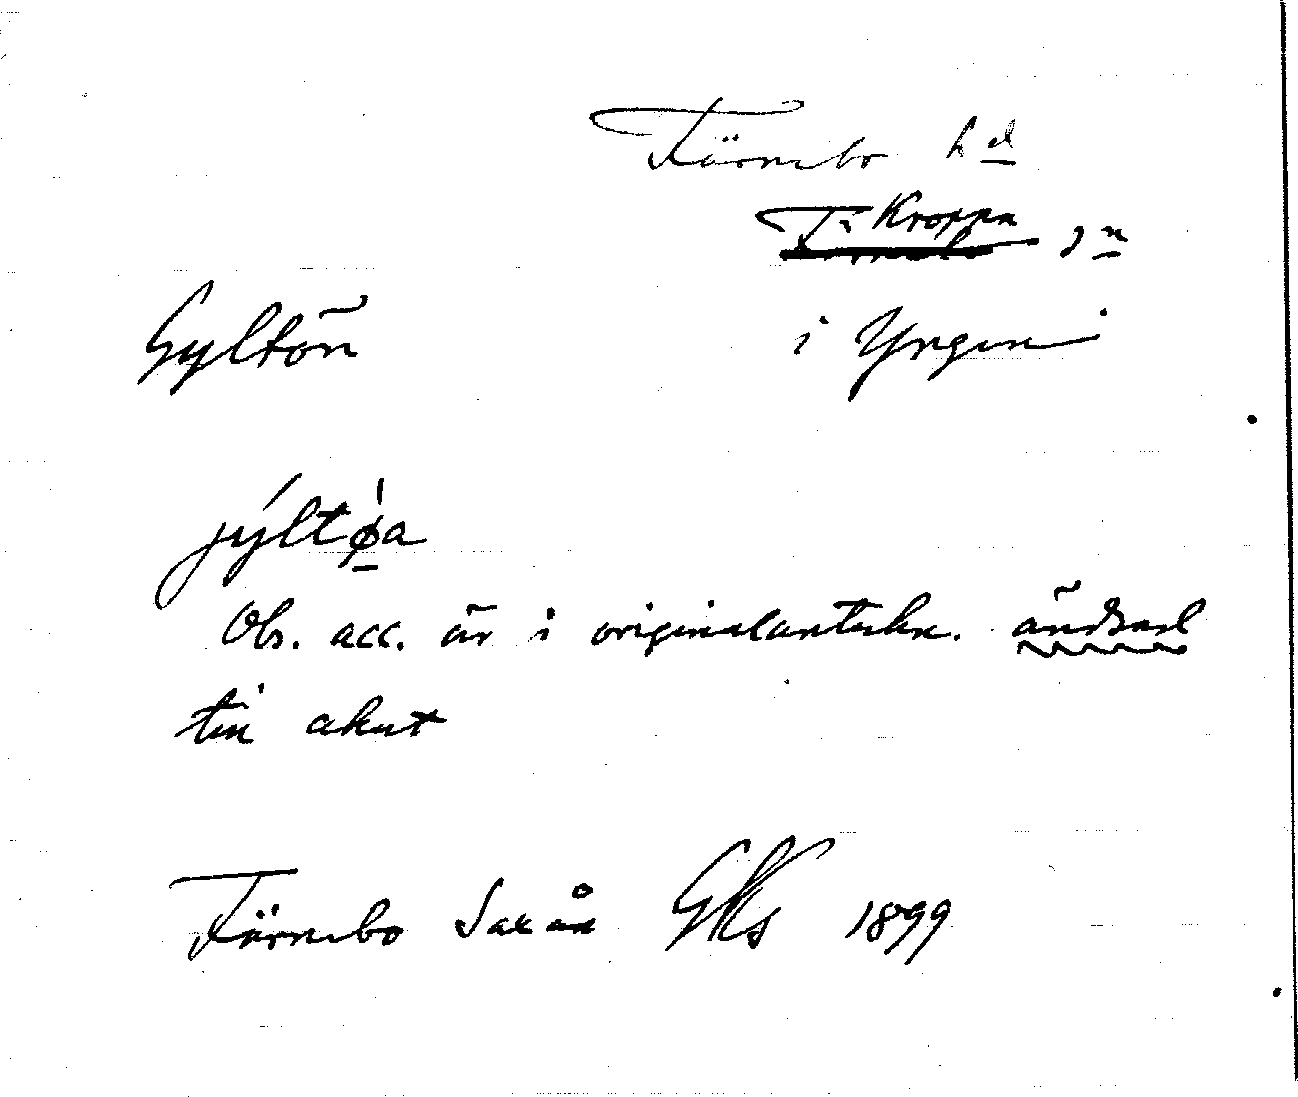 Färnebo hd
Kroppa sn
Gyltön
i Yngen
jýltø̀a
Obs. acc. är i originalantekn. ändrad
till akut
Färnebo Saxån GKs 1899